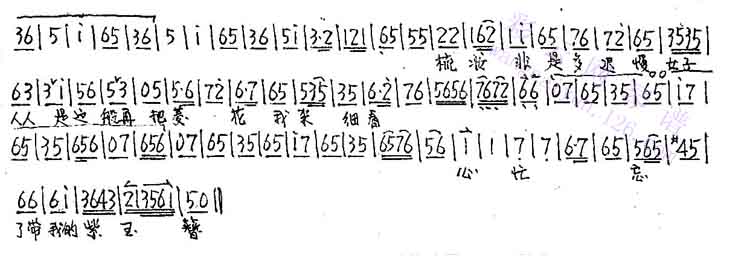 36 | 5 | i | 65 | 36 | 5 | i | 65 | 36 | 5i | 3·2 | 121 | 65 | 55 | 22 | 162 | ii | 65 | 76 | 72 | 65 | 3535 |
梳妆 非是多迟慢 女子
63 | 3i | 56 | 53 | 05 | 5·6 | 72 | 6·7 | 65 | 535 | 35 | 6·2 | 76 | 5656 | 7672 | 66 | 07 | 65 | 35 | 65 | i7 |
人人是这般再把菱 花我来细看
65 | 35 | 656 | 07 | 656 | 07 | 65 | 35 | 65 | i7 | 65 | 35 | 6576 | 56 | i | i | 7 | 7 | 6·7 | 65 | 565 | #45 |
心 忙 忘
66 | 6i | 3643 | 213561 | 5·0 ||
了带我的紫玉 簪